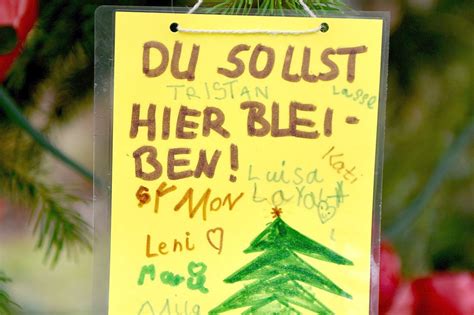 DU SOLLST
TRISTAN
Lasse
HIER BLEI-
BEN!
Kati
Luisa
SYMON
LAYAL
Leni
Marie
Mila